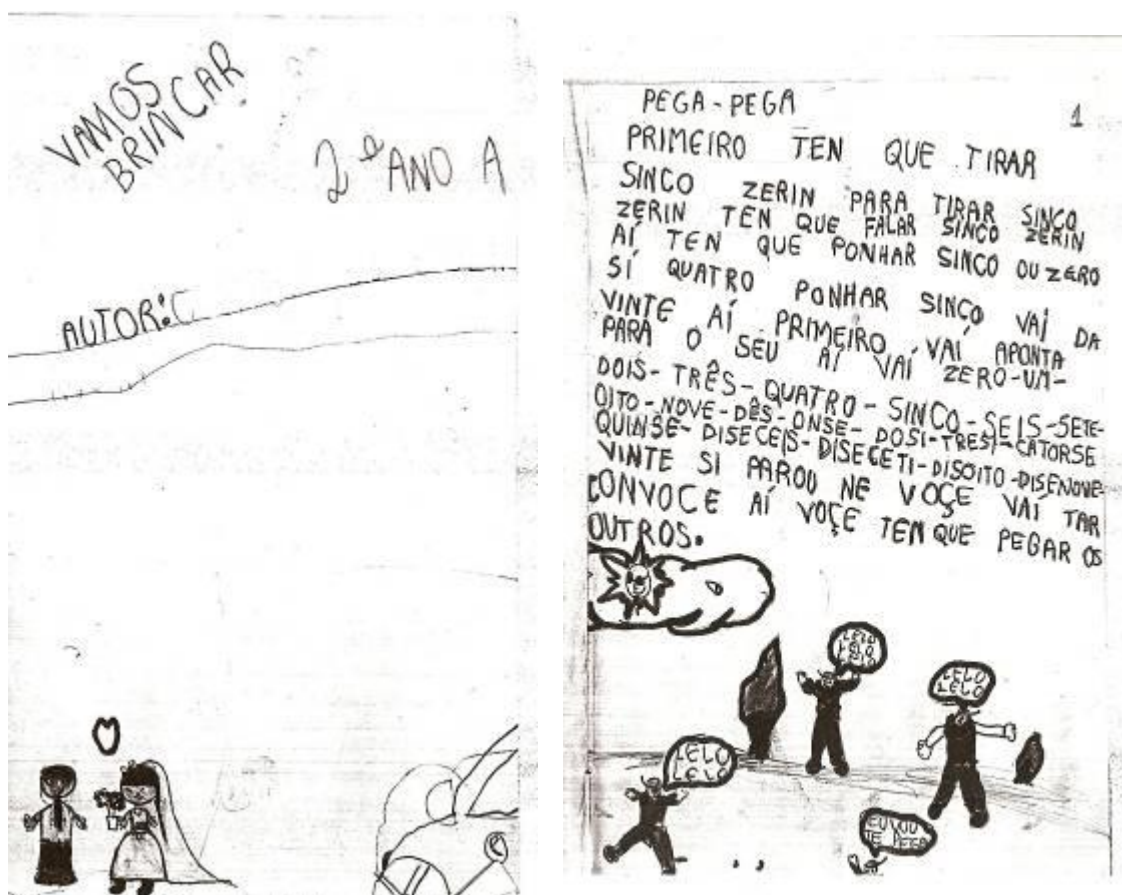 VAMOS
BRINCAR
2º ANO A
AUTOR: C
PEGA-PEGA
1
PRIMEIRO TEN QUE TIRAR
SINCO ZERIN PARA TIRAR SINCO
ZERIN TEN QUE FALAR SINCO ZERIN
AÍ TEN QUE PONHAR SINCO OU ZERO
SÍ QUATRO PONHAR SINCO VAÍ DA
VINTE AÍ PRIMEIRO VAÍ APONTA
PARA O SEU AÍ VAÍ ZERO-UM-
DOIS-TRÊS-QUATRO-SINCO-SEIS-SETE-
OITO-NOVE-DÊS-ONSE-DOSI-TRESI-CATORSE
QUINSE-DISECEIS-DISECETI-DISOITO-DISENOVE-
VINTE SI PAROU NE VOÇE VAÍ TAR
CONVOCE AÍ VOÇE TEN QUE PEGAR OS
OUTROS.
LELO
LELO
LELO
LELO
LELO
LELO
LELO
EU VOU
TE PEGA